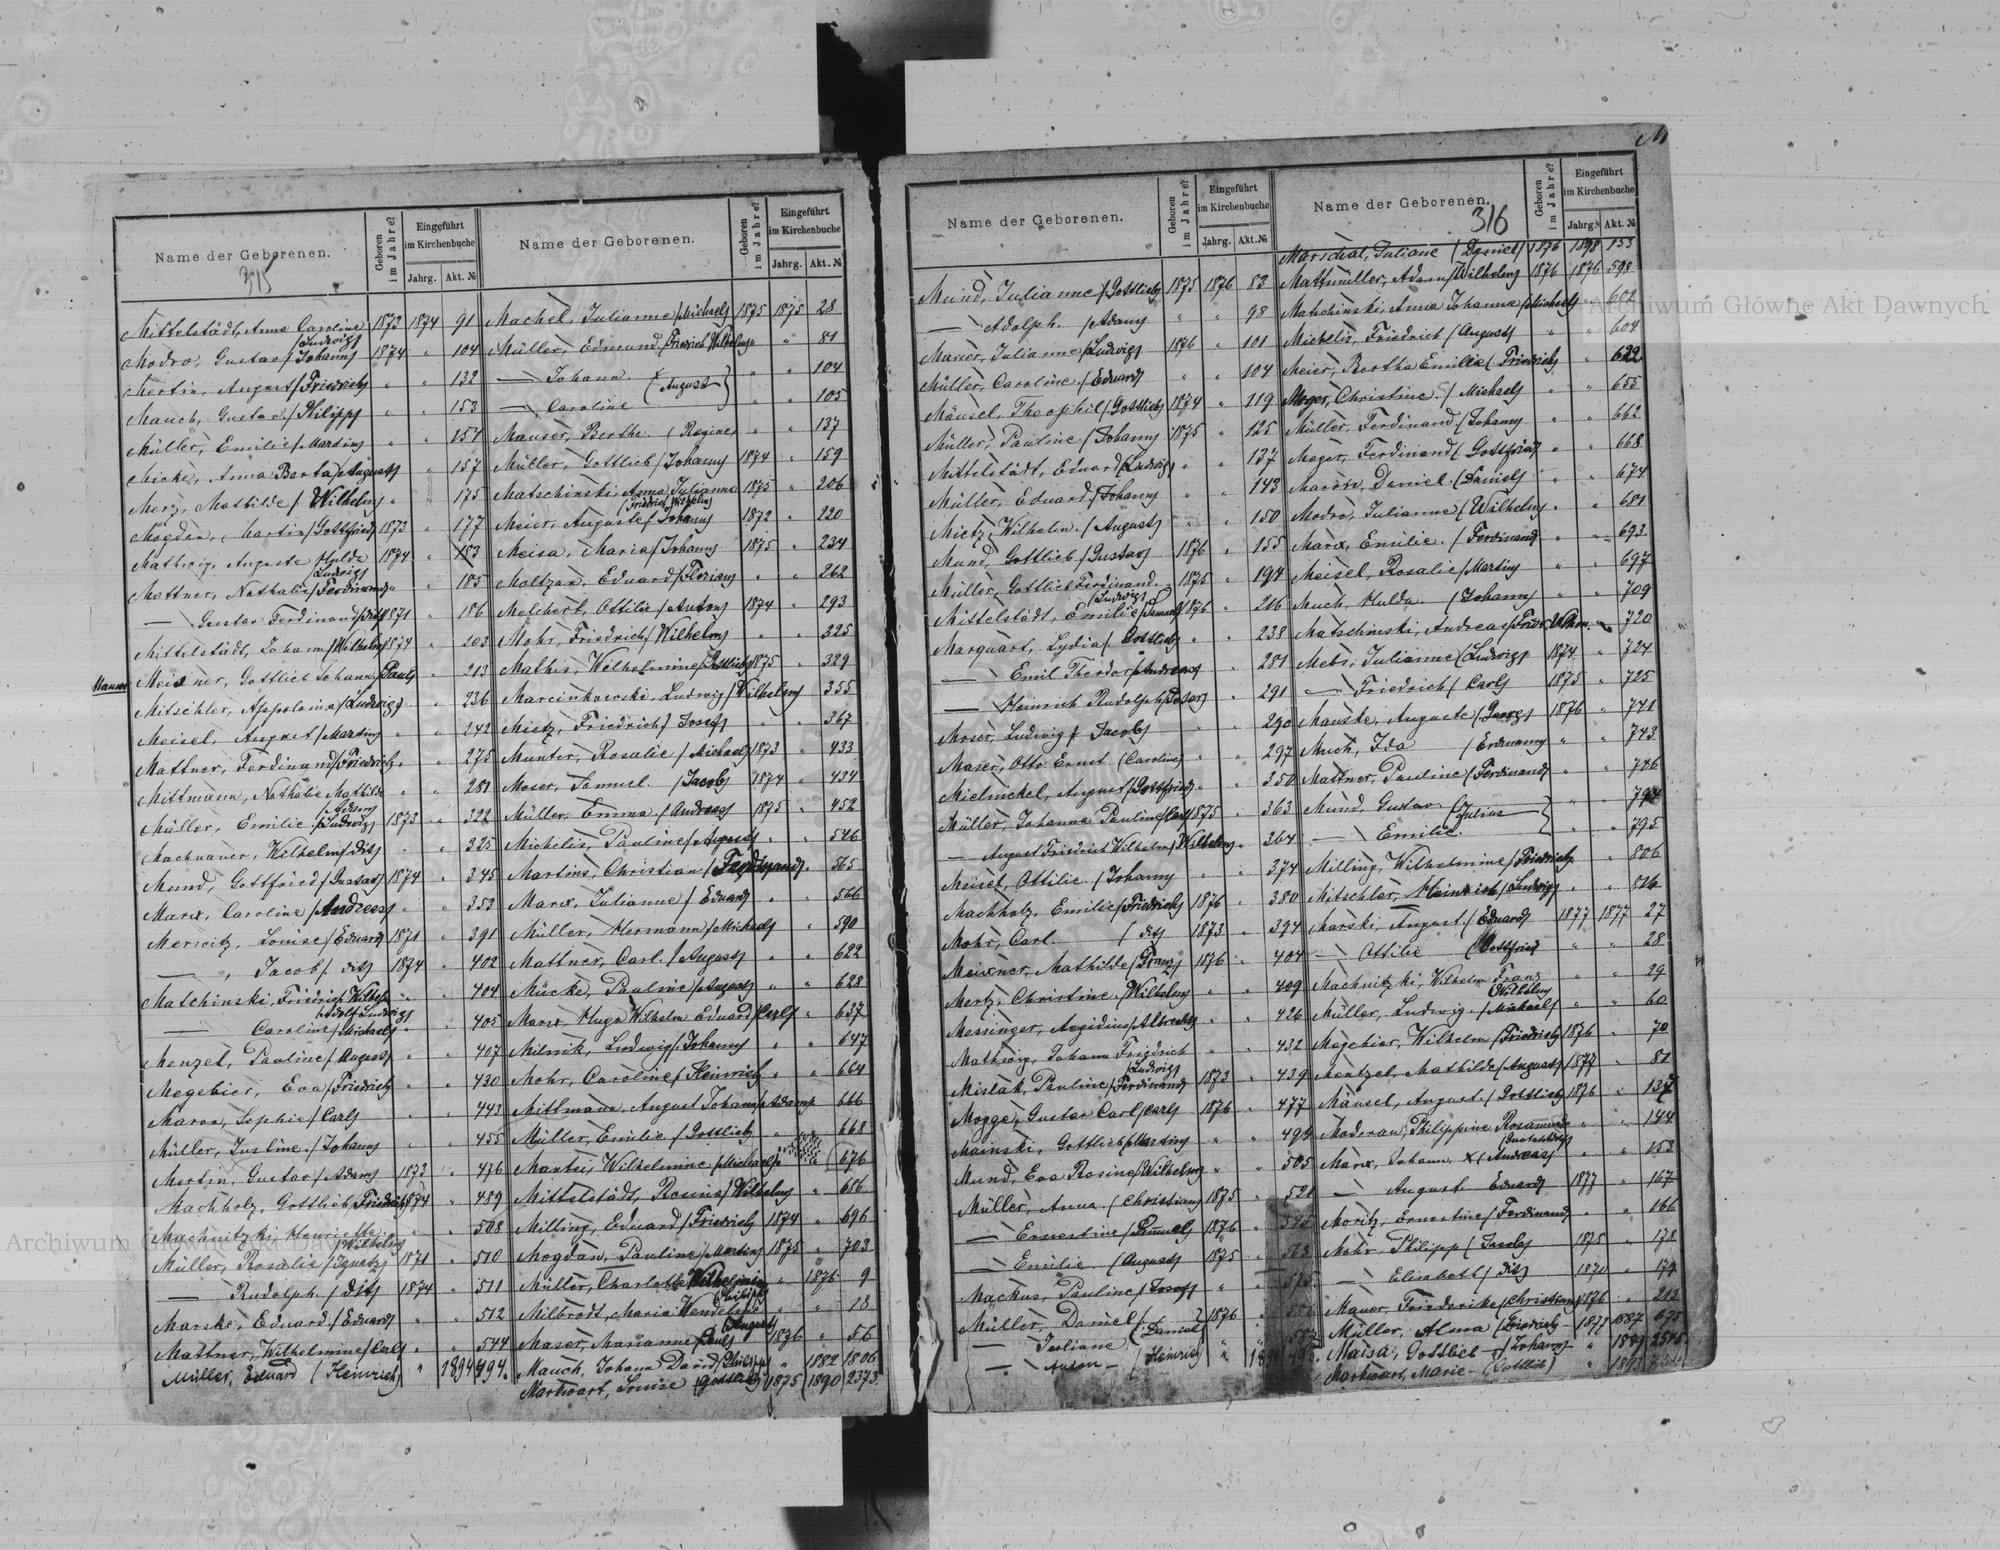 M
Name der Geborenen.
Geboren im Jahre?
Eingeführt im Kirchenbuche
Jahrg. Akt. №
315
Mittelstädt, Anna Caroline (Ludwig) 1873 1874 91
Modro, Gustav (Johann) 1874 " 104
Mertin, August (Friedrich) " " 132
Mauch, Gustav (Philipp) " " 153
Müller, Emilie (Martin) " " 154
Micke, Anna Berta (August) " " 157
Merz, Mathilde (Wilhelm) " " 175
Mogdan, Martin (Gottfried) 1873 " 177
Mathwig, Auguste Hulda (Ludwig) 1874 " 183
Mattner, Nathalie (Ferdinand) " " 185
— Gustav Ferdinand (dito) 1871 " 186
Mittelstädt, Johann (Wilhelm) 1874 " 203
Meixner, Gottlieb Johann (Paul) " " 213
Mitschler, Appolonia (Ludwig) " " 236
Meisel, August (Martin) " " 242
Mattner, Ferdinand (Friedrich) " " 275
Mittmann, Nathalie Mathilde (Adam) " " 281
Müller, Emilie (Ludwig) 1873 " 322
Machnauer, Wilhelm (dito) " " 325
Mund, Gottfried (Gustav) 1874 " 345
Marx, Caroline (Andreas) " " 353
Merwitz, Louise (Eduard) 1871 " 391
— , Jacob (dito) 1874 " 402
Matschinski, Friedrich Wilhelm (Adolf Ludwig) " " 404
— Caroline (Michael) " " 405
Menzel, Pauline (August) " " 407
Megebier, Eva (Friedrich) " " 430
Maron, Sophie (Carl) " " 443
Müller, Justine (Johann) " " 455
Mertin, Gustav (Adam) 1873 " 476
Machholz, Gottlieb (Friedrich) 1874 " 489
Machnitzki, Henriette (Wilhelm) " " 508
Müller, Rosalie (Ignatz) 1871 " 510
— Rudolph (dito) 1874 " 511
Marske, Eduard (Eduard) " " 512
Mattner, Wilhelmine (Carl) " " 544
Müller, Eduard (Heinrich) " 1894 494.
Name der Geborenen.
Geboren im Jahre?
Eingeführt im Kirchenbuche
Jahrg. Akt. №
Machel, Julianne (Michael) 1875 1875 28
Müller, Edmund (Friedrich Wilhelm) " " 81
— Johann (August) " " 104
— Caroline " " 105
Mauser, Bertha (Regine) " " 137
Müller, Gottlieb (Johann) 1874 " 159
Matschinski, Anna Julianna (Friedrich Wilhelm) 1875 " 206
Meier, Auguste (Johann) 1872 " 220
Meisa, Maria (Johann) 1875 " 234
Moltzan, Eduard (Florian) " " 262
Melchert, Ottilie (Anton) 1874 " 293
Mohr, Friedrich (Wilhelm) " " 325
Mathis, Wilhelmine (Gottlieb) 1875 " 329
Marcinkowski, Ludwig (Wilhelm) " " 355
Mietz, Friedrich (Josef) " " 367
Munter, Rosalie (Michael) 1873 " 433
Moser, Samuel (Jacob) 1874 " 434
Müller, Emma (Andreas) 1875 " 452
Michelis, Pauline (August) " " 546
Martins, Christian (Ferdinand) " " 565
Marx, Julianne (Eduard) " " 566
Müller, Hermann (Michael) " " 590
Mattner, Carl (August) " " 622
Mücke, Pauline (August) " " 628
Marx, Hugo Wilhelm Eduard (Carl) " " 637
Milnik, Ludwig (Johann) " " 647
Mohr, Caroline (Heinrich) " " 664
Mittmann, August Johann (Adam) " " 666
Müller, Emilie (Gottlieb) " " 668
Mantei, Wilhelmine (Michael) " " 676
Mittelstädt, Rosina (Wilhelm) " " 686
Milling, Eduard (Friedrich) 1874 " 696
Mogdan, Pauline (Martin) 1875 " 703
Müller, Charlotte Wilhelmine (Philipp) " 1876 9
Milbrodt, Maria Wendeline (August) " " 18
Maser, Marianne (Paul) 1876 " 56
Mauch, Johann David (Philipp) " 1882 1806
Markwart, Louise (Gottlieb) 1875 1890 2373.
Name der Geborenen.
Geboren im Jahre?
Eingeführt im Kirchenbuche
Jahrg. Akt. №
Mund, Julianne (Gottlieb) 1875 1876 83
— Adolph (Adam) " " 98
Maurer, Julianne (Ludwig) 1876 " 101
Müller, Caroline (Eduard) " " 104
Mäusel, Theophil (Gottlieb) 1874 " 119
Müller, Pauline (Johann) 1875 " 125
Mittelstädt, Eduard (Ludwig) " " 137
Müller, Eduard (Johann) " " 143
Mietz, Wilhelm (August) " " 150
Mund, Gottlieb (Gustav) 1876 " 155
Müller, Gottlieb Ferdinand (Ludwig) 1875 " 194
Mittelstädt, Emilie (Samuel) 1876 " 216
Marquart, Lydia (Gottlieb) " " 238
— Emil Theodor (Andreas) " " 281
— Heinrich Rudolph " " 291
Moser, Ludwig (Jacob) " " 290
Maser, Otto Ernst (Caroline) " " 297
Mielnickel, August (Gottfried) " " 350
Müller, Johanna Pauline (Carl) 1875 " 363
— August Friedrich Wilhelm (Wilhelm) " " 364
Meisel, Ottilie (Johann) " " 374
Machholz, Emilie (Friedrich) 1876 " 380
Mohr, Carl (dito) 1873 " 394
Meixner, Mathilde (Franz) 1876 " 404
Mertz, Christine (Wilhelm) " " 409
Messinger, Aegidius (Albrecht) " " 426
Mathwig, Johann Friedrich (Ludwig) " " 432
Mislak, Pauline (Ferdinand) 1873 " 439
Mogge, Gustav Carl (Carl) 1876 " 477
Mainski, Gottlieb (Martin) " " 494
Mund, Eva Rosine (Wilhelm) " " 505
Müller, Anna (Christian) 1875 " 521
— Ernestine (Samuel) 1876 " 525
— Emilie (August) 1875 " 563
Mackus, Pauline (Josef) " " 575
Müller, Daniel (Daniel) 1876 "
— Juliane " "
— Anton (Heinrich) "
Name der Geborenen.
Geboren im Jahre?
Eingeführt im Kirchenbuche
Jahrg. Akt. №
316
Marschal, Juliane (Daniel) 1876 1898 133
Mattmüller, Adam (Wilhelm) 1876 1876 598
Matschinski, Anna Johanna (Michael) " " 602
Michelis, Friedrich (August) " " 604
Meier, Bertha Emilie (Friedrich) " " 622
Meyer, Christine (Michael) " " 655
Müller, Ferdinand (Johann) " " 662
Meyer, Ferdinand (Gottfried) " " 668
Maron, Daniel (Daniel) " " 674
Modro, Julianne (Wilhelm) " " 681
Marx, Emilie (Ferdinand) " " 693
Meisel, Rosalie (Martin) " " 697
Much, Hulda (Johann) " " 709
Matschinski, Andreas (Friedr. Wilhelm) " " 720
Mebs, Julianne (Ludwig) 1874 " 724
— Friedrich (Carl) 1875 " 725
Manske, Auguste (Georg) 1876 " 741
Much, Ida (Erdmann) " " 743
Mattner, Pauline (Ferdinand) " " 746
Mund, Gustav (Julius) " " 794
— Emilie " " 795
Milling, Wilhelmine (Friedrich) " " 806
Mitschler, Heinrich (Ludwig) " " 816
Marski, August (Eduard) 1877 1877 27
— Ottilie (Gottfried) " " 28
Machnitzki, Wilhelm Franz (Wilhelm) " " 29
Müller, Ludwig (Michael) " " 60
Megebier, Wilhelm (Friedrich) 1876 " 70
Mentzel, Mathilde (August) 1877 " 81
Mäusel, August (Gottlieb) 1876 " 137
Moderau, Philippine Rosamunde " " 144
Marx, Johann (Andreas) " " 153
— August Eduard 1877 " 167
Moritz, Ernestine (Ferdinand) " " 166
Mohr, Philipp (Jacob) 1875 " 178
— Elisabeth (dito) 1870 " 179
Mauer, Friederike (Christian) 1876 " 213
Müller, Alma (Friedrich) 1877 1887 675
Maisa, Gottlieb (Johann) " 1889
Markwart, Marie (Gottlieb) "
Archiwum Główne Akt Dawnych
Archiwum Główne Akt Dawnych